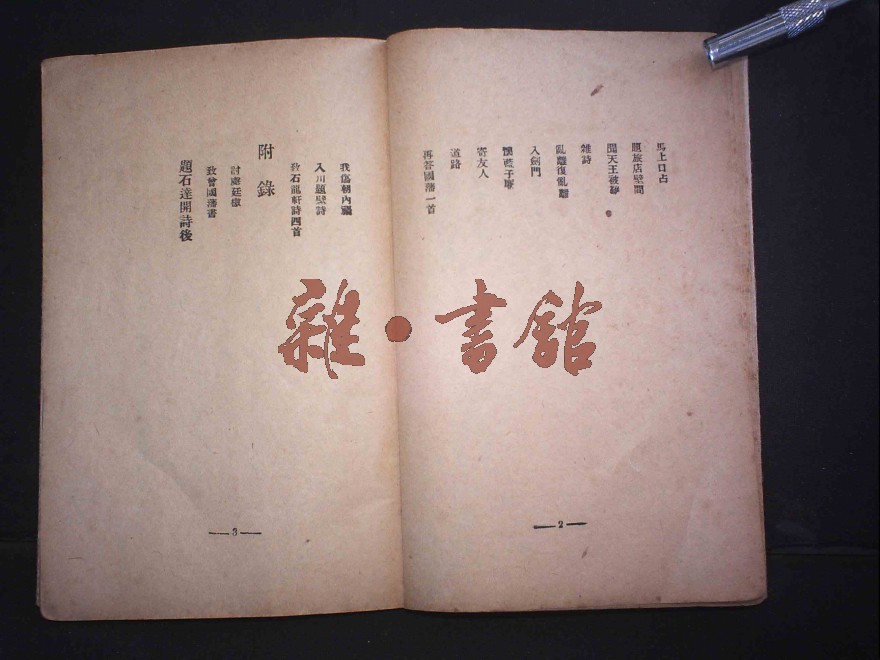 馬上口占
題旅店壁間
聞天王被
雜詩
亂離復亂離
入劍門
懷藍子軍
寄友人
道路
再答國藩一首
2
我為朝內
入川題壁詩
致石龍軒詩四首
附錄
討虜廷檄
致曾國藩書
題石達開詩後
3
雜·書館